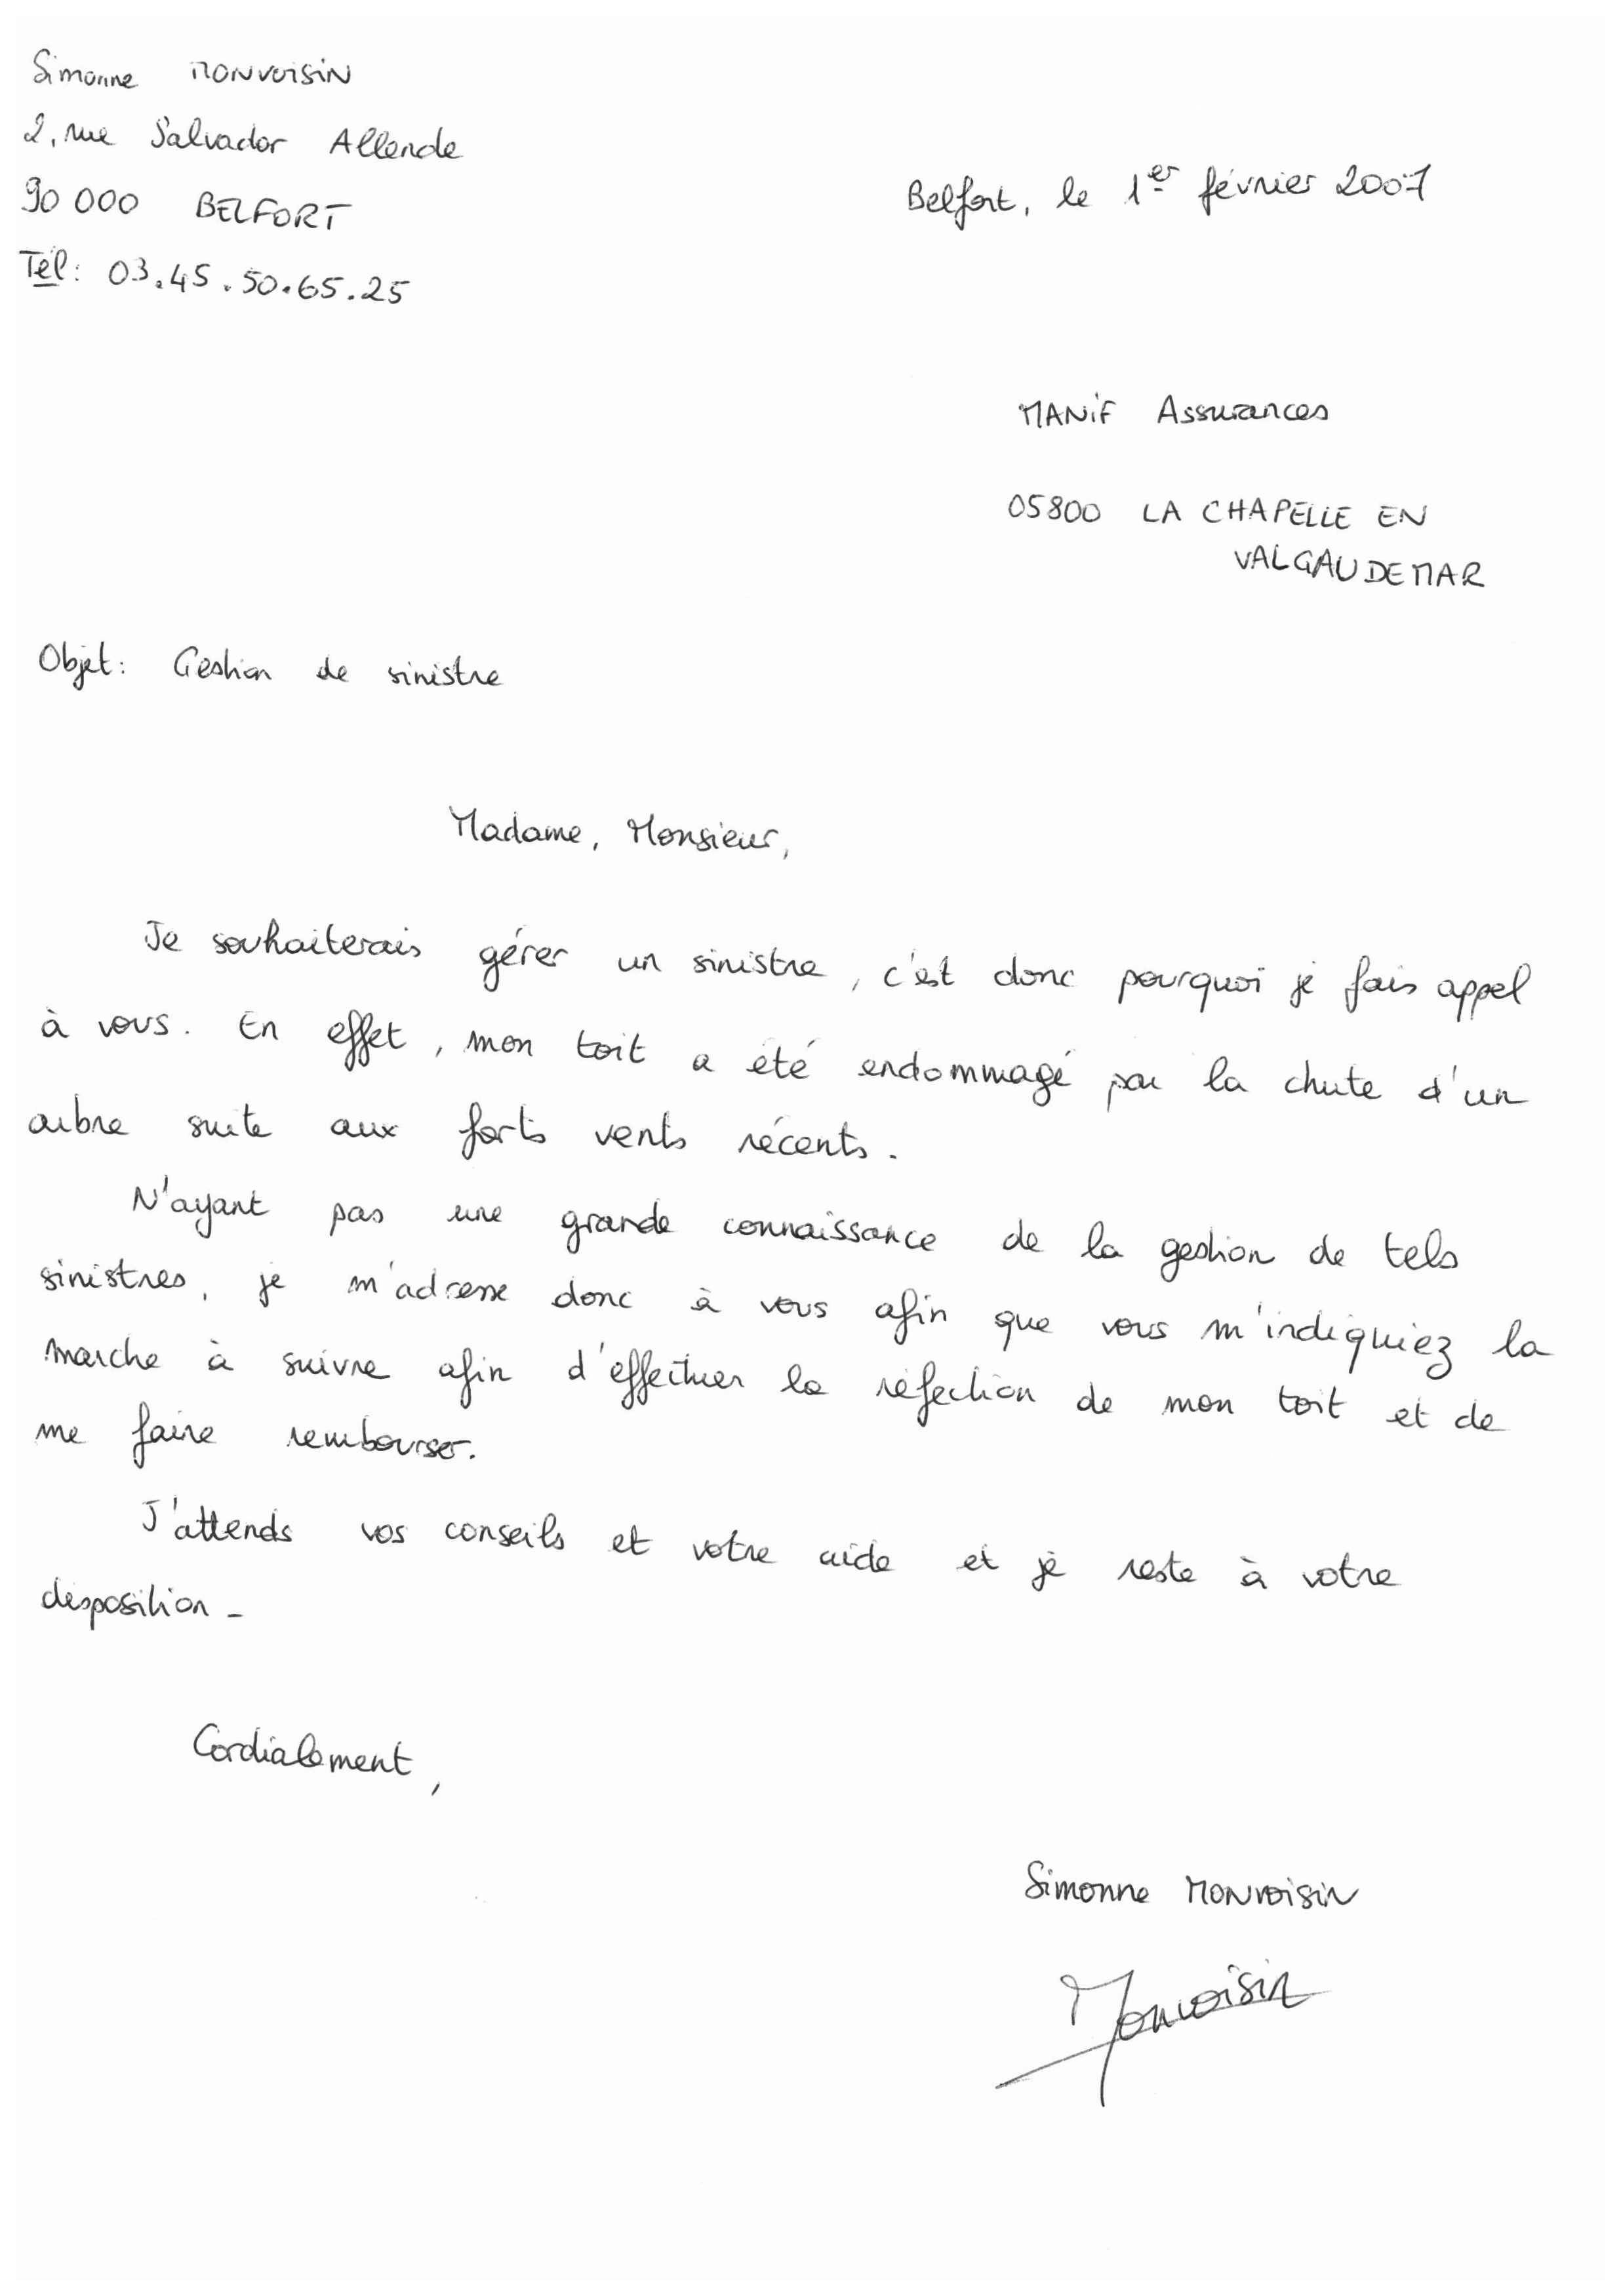 Simonne MONVOISIN
2, rue Salvador Allende
90 000 BELFORT
Tél: 03.45.50.65.25
Belfort, le 1er février 2007
MANIF Assurances
05800 LA CHAPELLE EN
VALGAUDEMAR
Objet: Gestion de sinistre
Madame, Monsieur,
Je souhaiterais gérer un sinistre, c'est donc pourquoi je fais appel
à vous. En effet, mon toit a été endommagé par la chute d'un
arbre suite aux forts vents récents.
N'ayant pas une grande connaissance de la gestion de tels
sinistres, je m'adresse donc à vous afin que vous m'indiquiez la
marche à suivre afin d'effectuer la réfection de mon toit et de
me faire rembourser.
J'attends vos conseils et votre aide et je reste à votre
disposition -
Cordialement,
Simonne MONVOISIN
Monvoisin